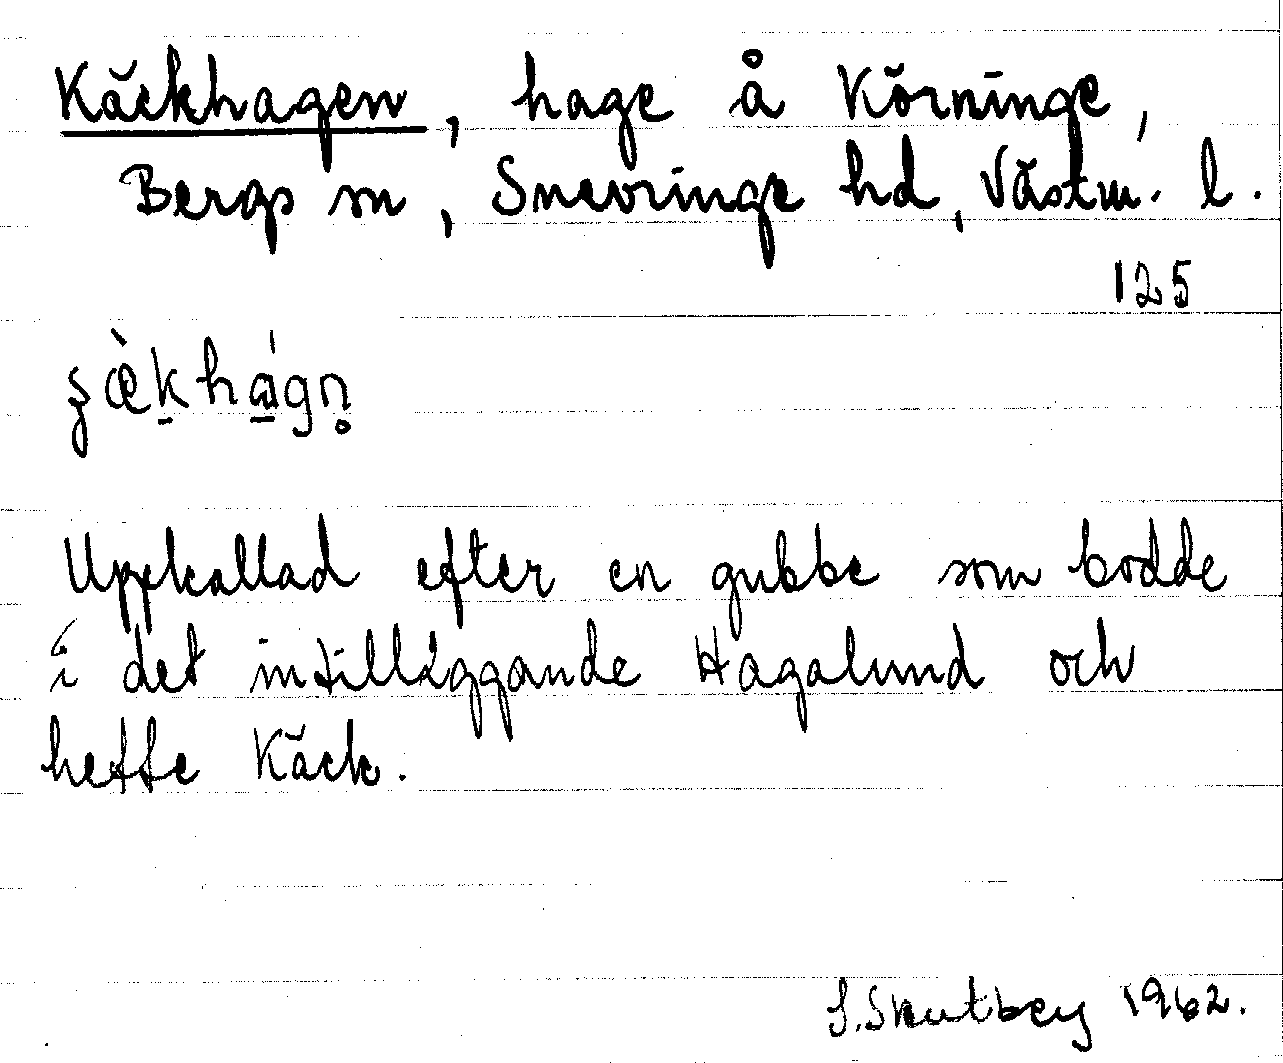 Käckhagen, hage å Körninge,
Bergs sn, Snevringe hd, Västm. l.
125
Uppkallad efter en gubbe som bodde
i det intilläggande Hagalund och
hette Käck.
S. Skutbey 1962.